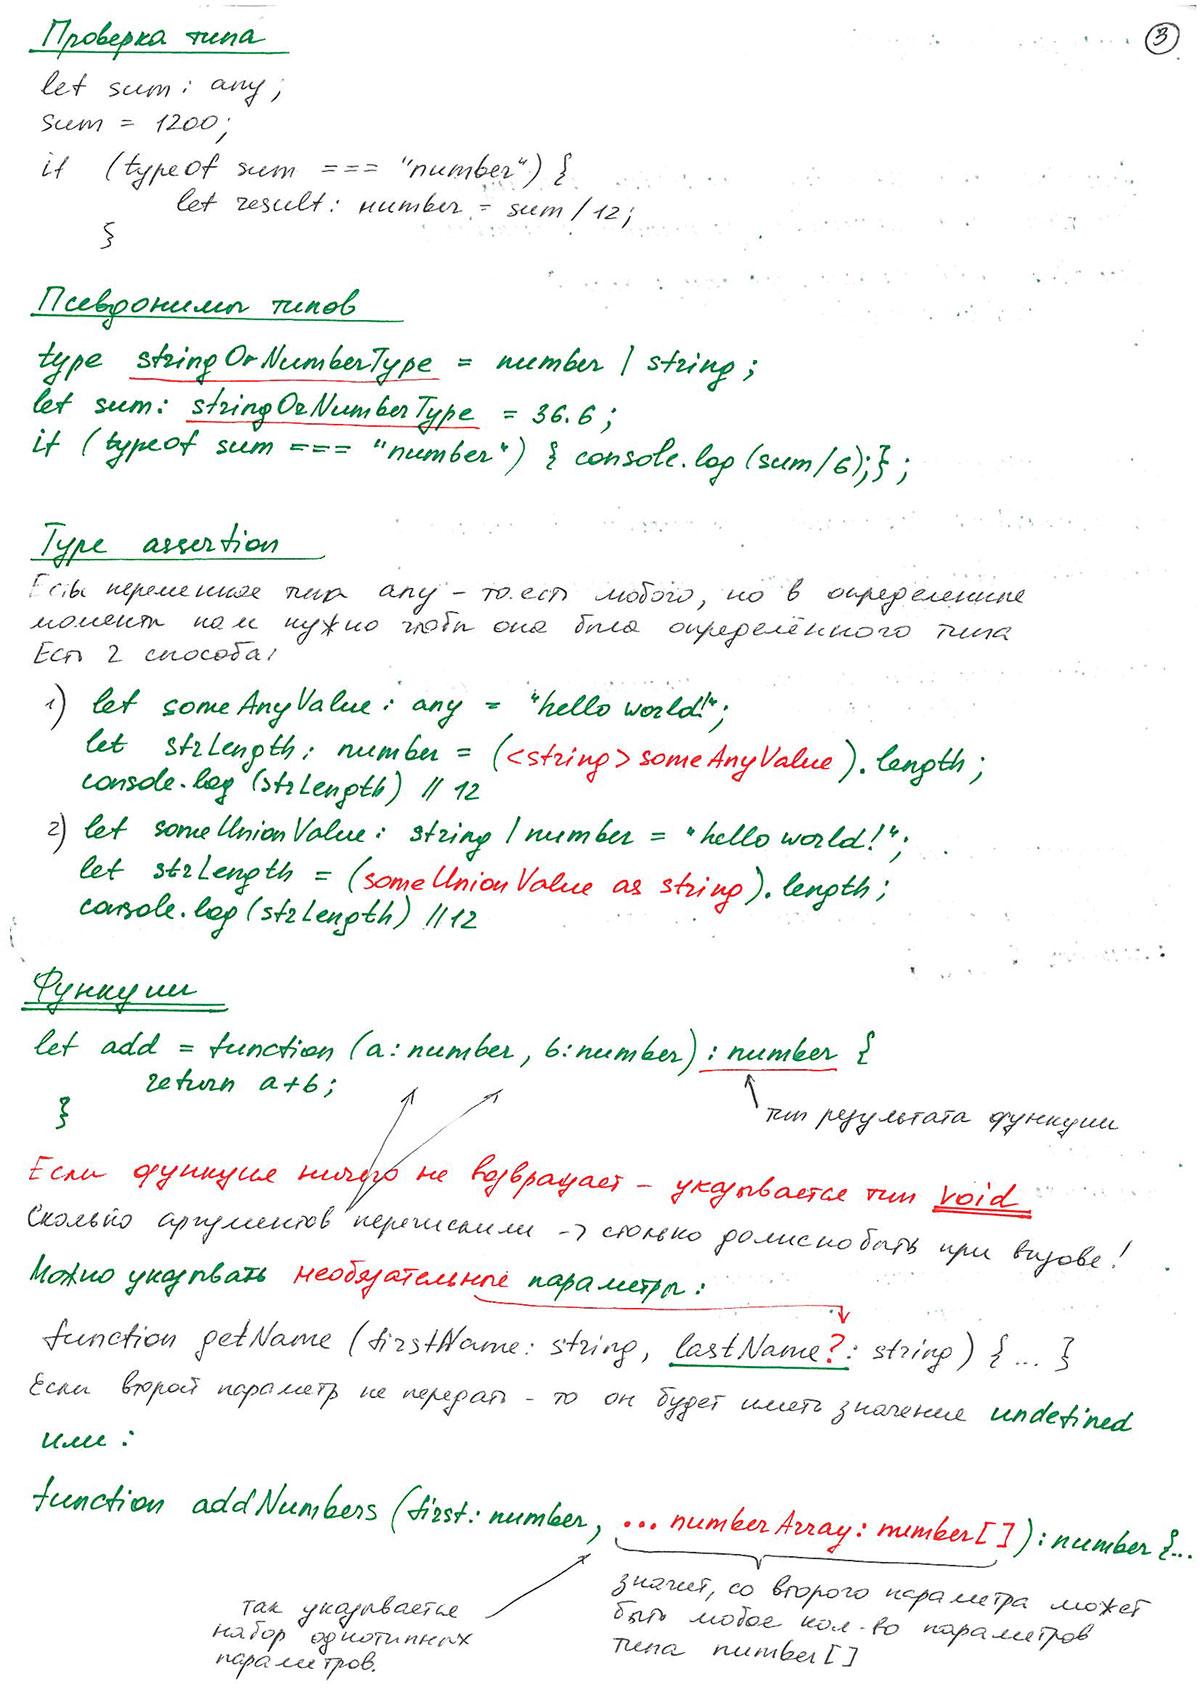 Проверка типа
3
let sum: any;
sum = 1200;
if (typeof sum === "number") {
let result: number = sum/12;
}
Псевдонимы типов
type stringOrNumberType = number | string;
let sum: stringOrNumberType = 36.6;
if (typeof sum === "number") { console.log(sum/6);};
Type assertion
Есть переменная типа any - то есть любого, но в определенные
моменты нам нужно чтобы она была определённого типа
Есть 2 способа:
1) let someAnyValue: any = "hello world!";
let strLength: number = (<string>someAnyValue).length;
console.log(strLength) // 12
2) let someUnionValue: string | number = "hello world!";
let strLength = (someUnionValue as string).length;
console.log(strLength) // 12
Функции
let add = function (a: number, b: number): number {
return a+b;
}
тип результата функции
Если функция ничего не возвращает - указывается тип void
Сколько аргументов перечислили -> столько должно быть при вызове!
Можно указывать необязательные параметры:
function getName (firstName: string, lastName?: string) {...}
Если второй параметр не передать - то он будет иметь значение undefined
или:
function addNumbers (first: number, ...numberArray: number[]): number {...
так указывается
набор однотипных
параметров.
значит, со второго параметра может
быть любое кол-во параметров
типа number[]